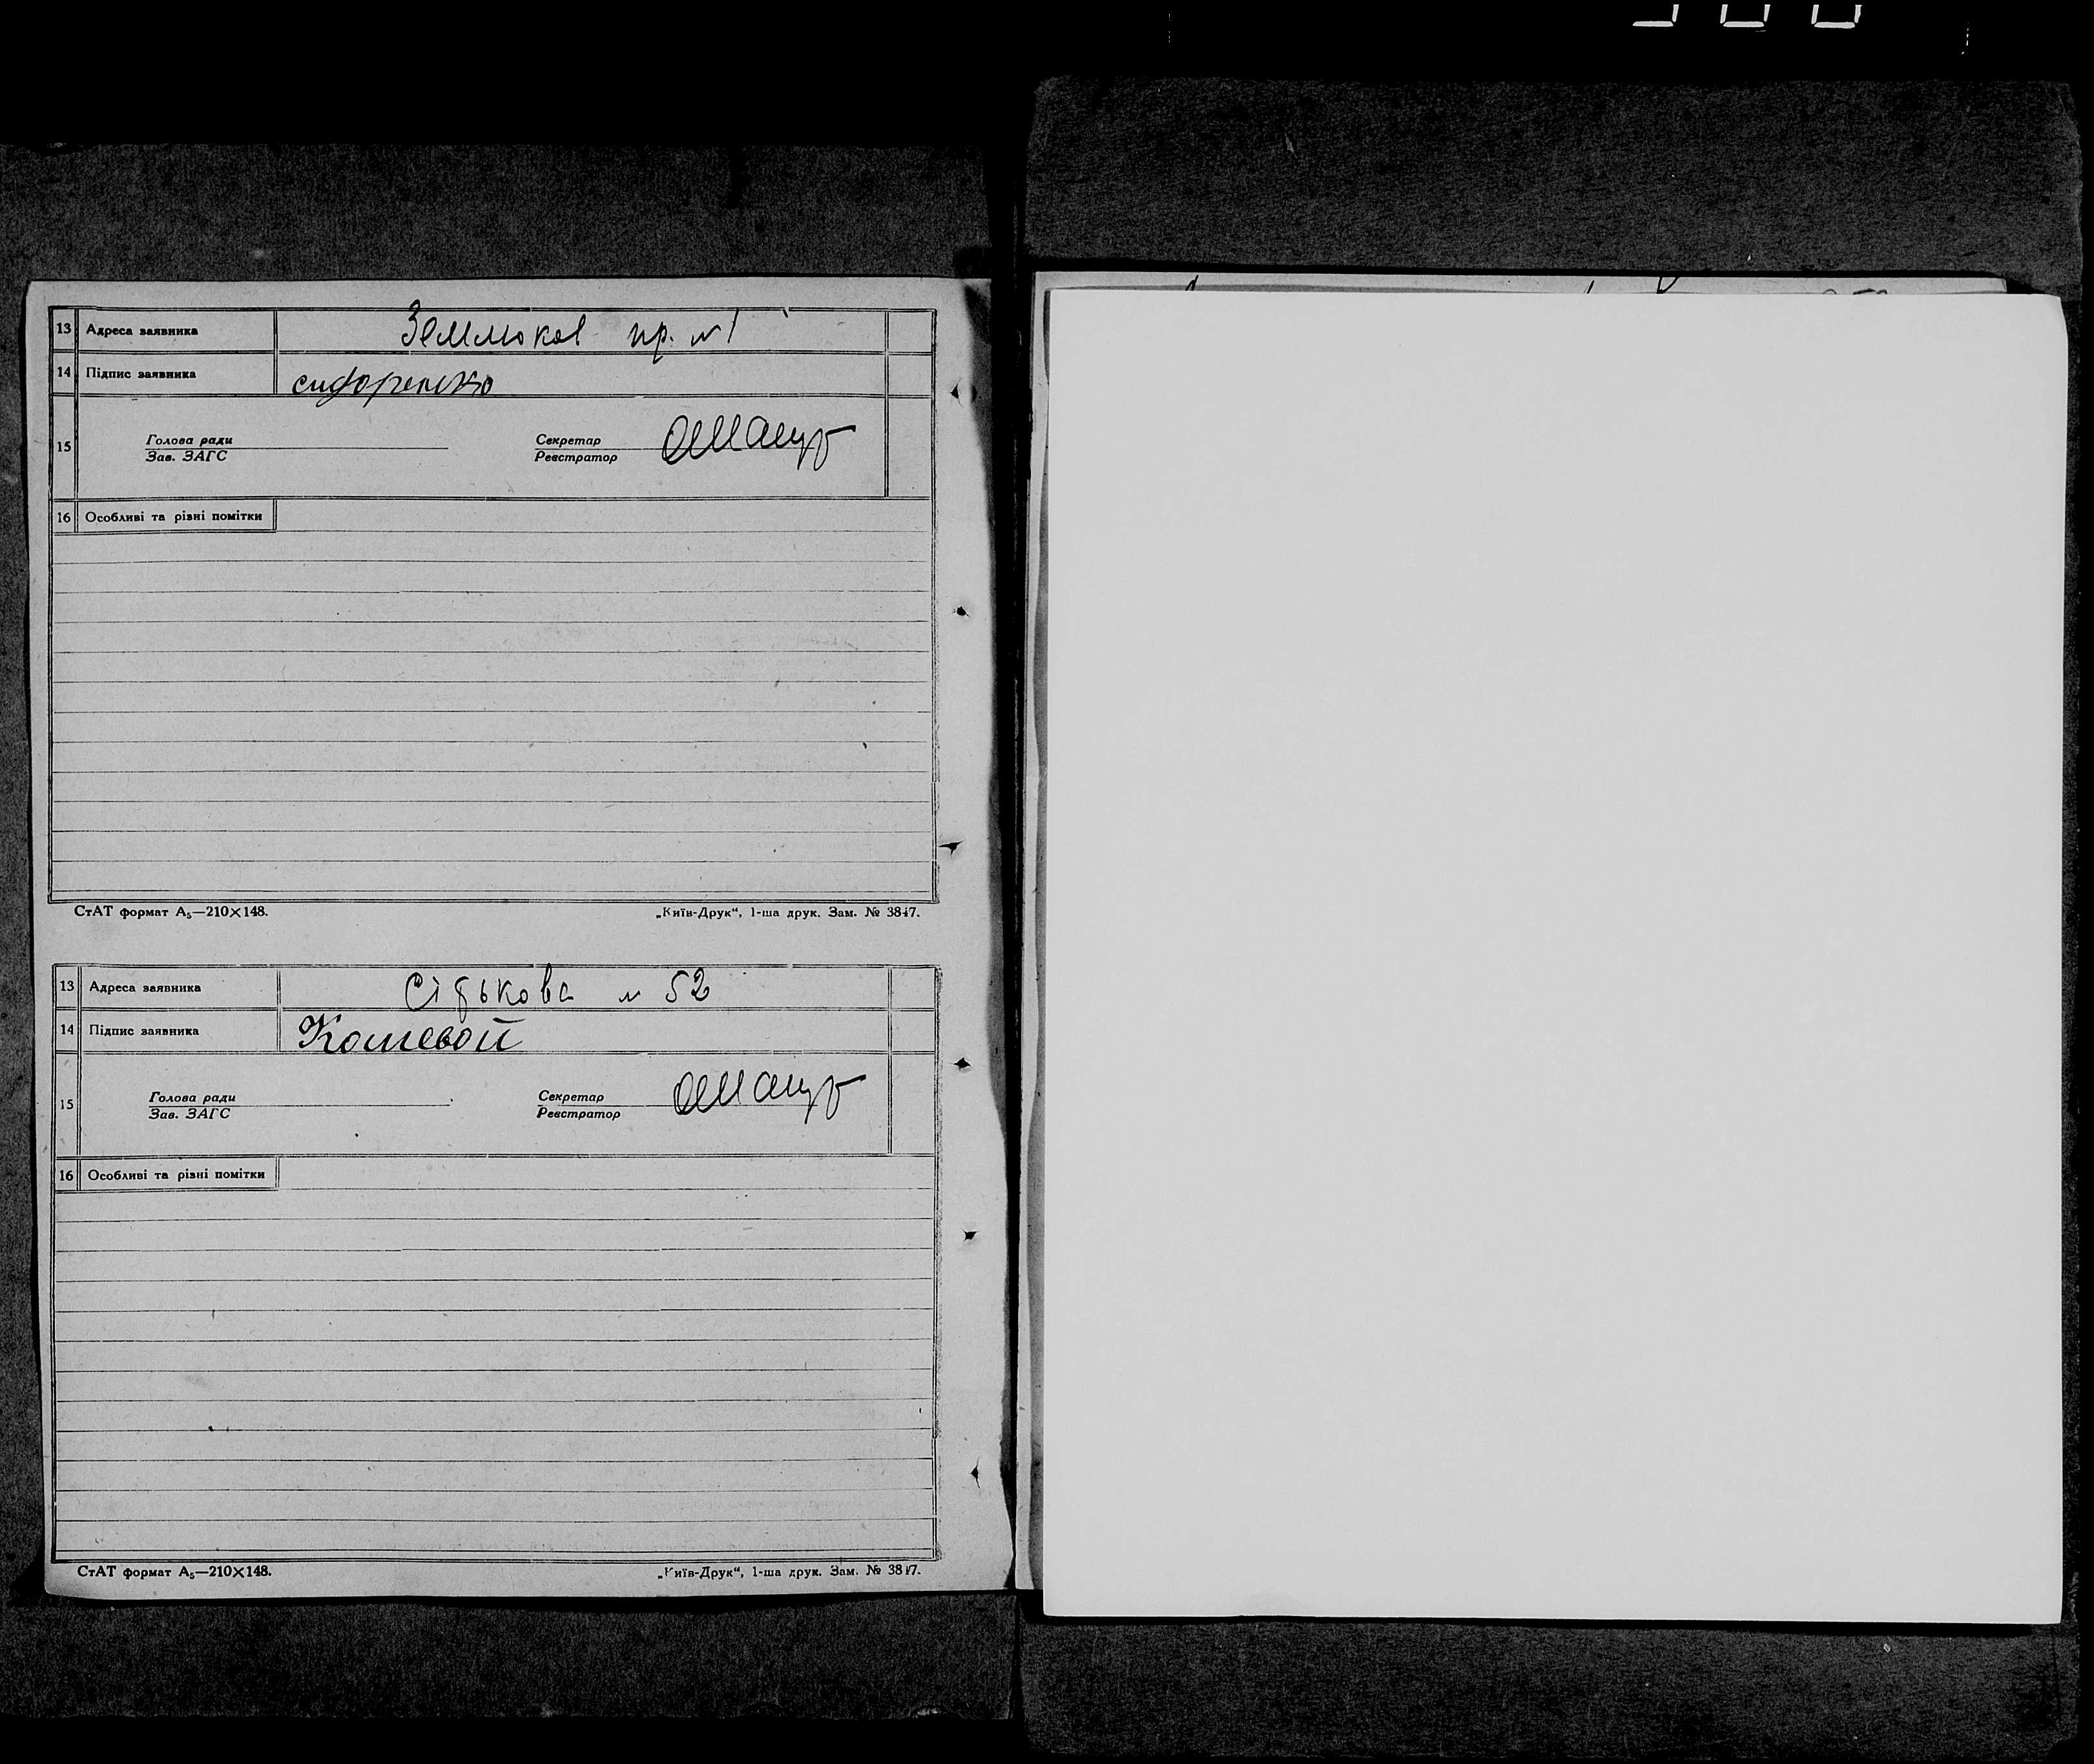 13 Адреса заявника пр. № 1
14 Підпис заявника сидоренко
15 Голова ради Секретар
Зав. ЗАГС Реєстратор
16 Особливі та різні помітки
СтАТ формат А₅—210×148. „Київ-Друк“, 1-ша друк. Зам. № 3847.
13 Адреса заявника № 52
14 Підпис заявника Кошевой
15 Голова ради Секретар
Зав. ЗАГС Реєстратор
16 Особливі та різні помітки
СтАТ формат А₅—210×148. „Київ-Друк“, 1-ша друк. Зам. № 3847.